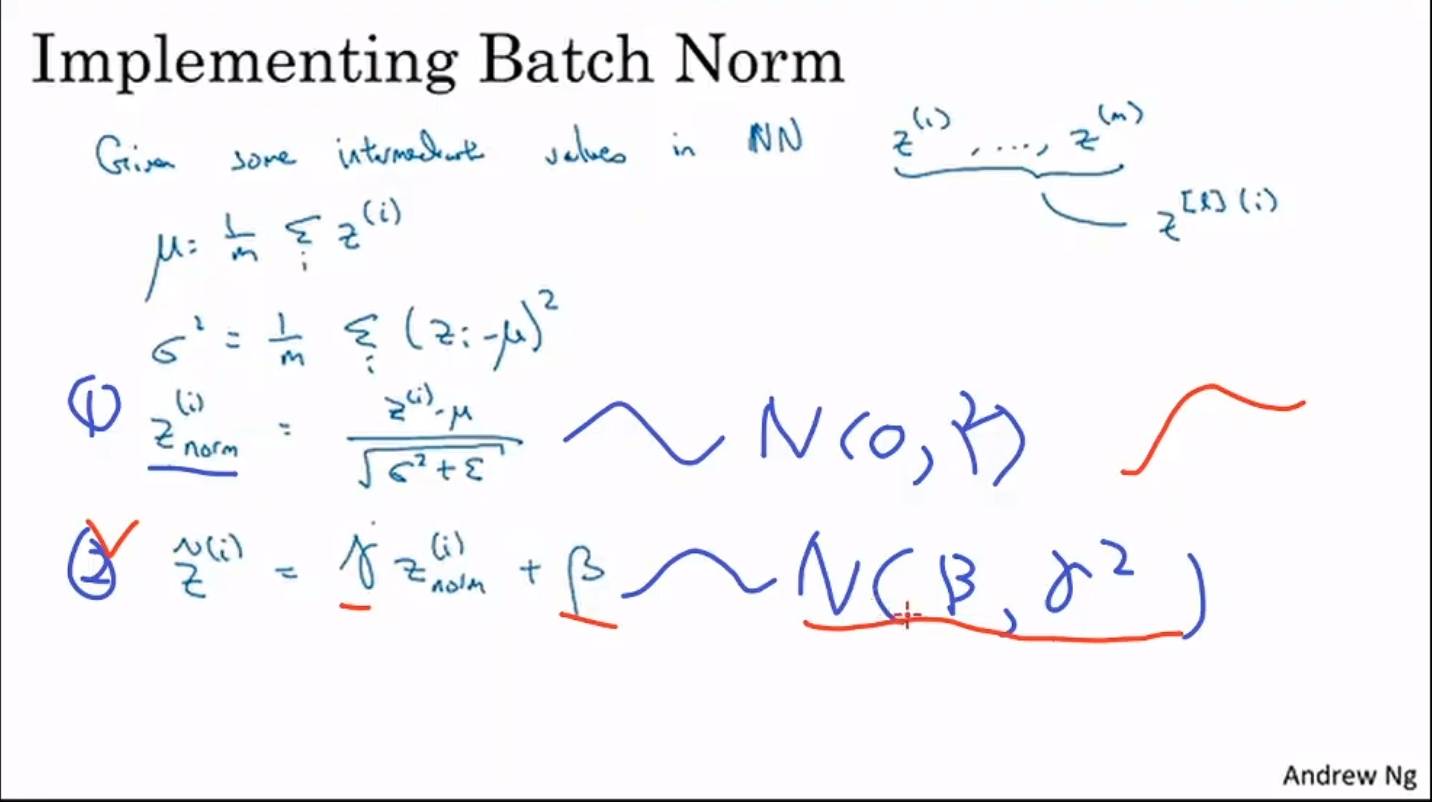 Implementing Batch Norm
Given some intermediate values in NN z^(i), ...., z^(m)
z^[l](i)
μ = 1/m Σ_i z^(i)
σ² = 1/m Σ_i (z_i - μ)²
① z^(i)_norm = (z^(i) - μ) / √(σ² + ε) ~ N(0, )
② z̃^(i) = γ z^(i)_norm + β ~ N(β, γ²)
Andrew Ng